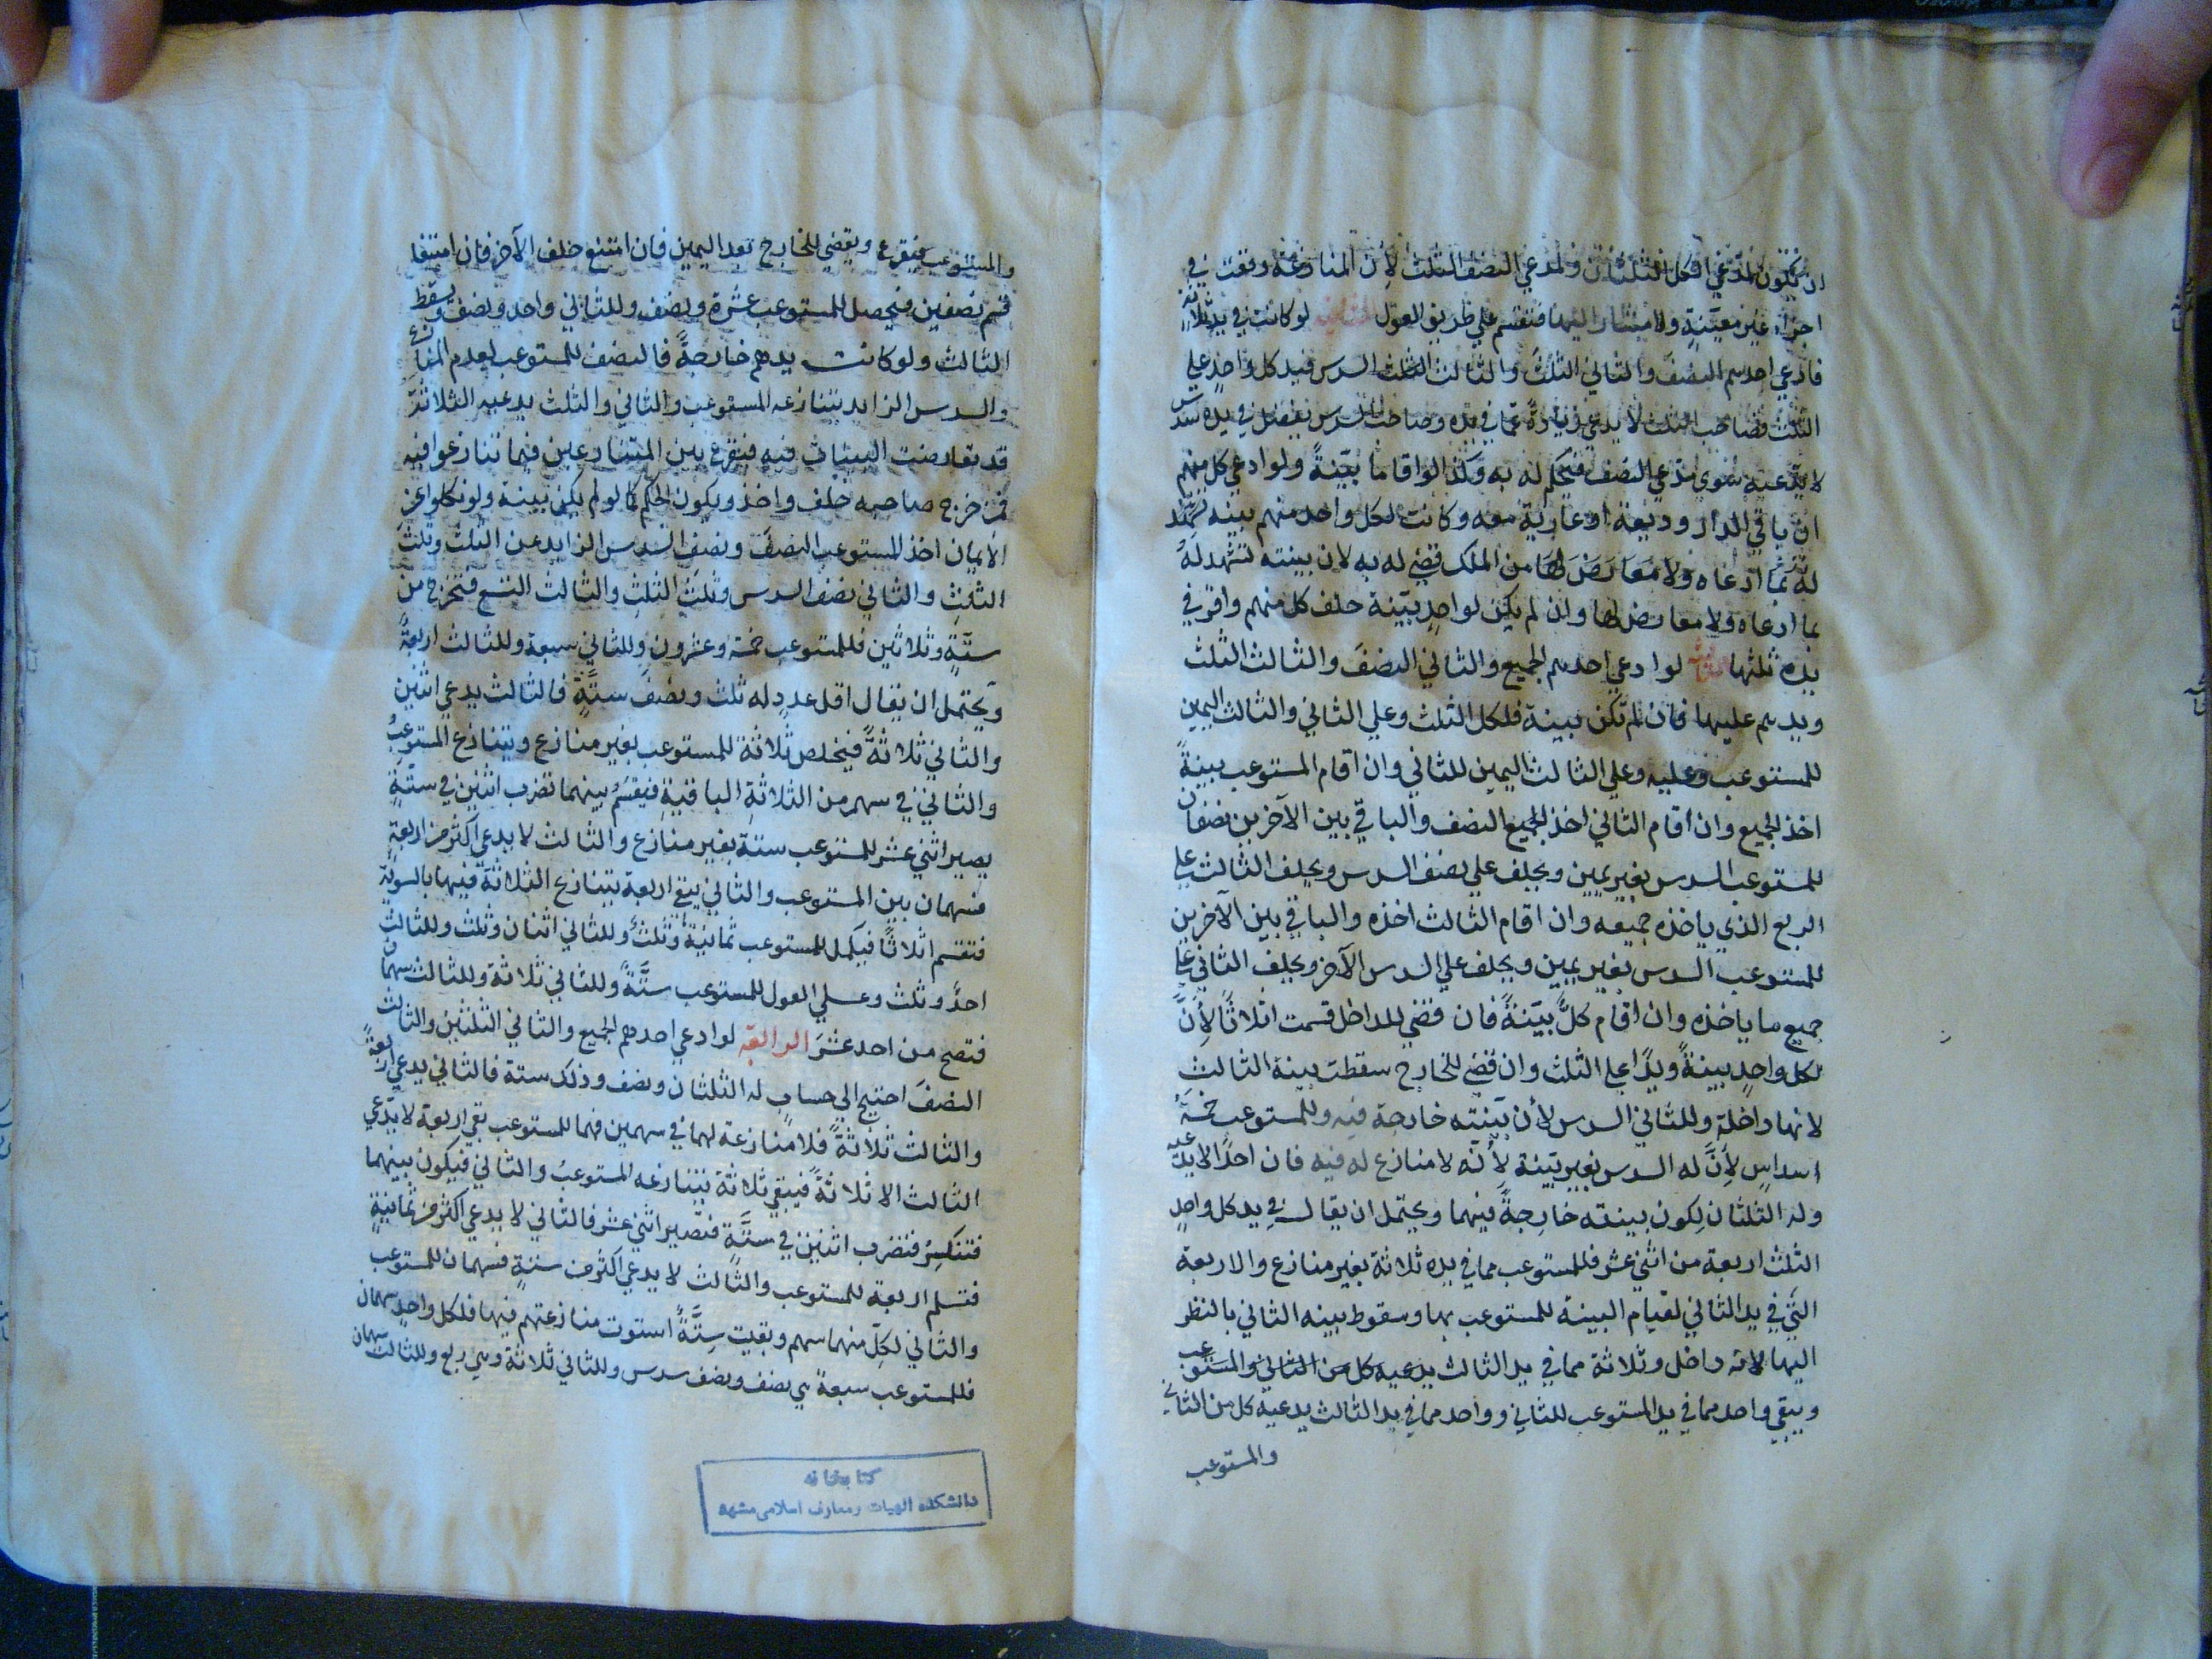 ان يكون لمدعي الكل الثلثان ولمدعي النصف الثلث لأن المنازعة وقعت في
اجزاء غير معينة ولا مشار اليها فتقسم على طريق العول لو كانت في يد ثلاثة
فادعى احدهم النصف والثاني الثلث والثالث السدس فيد كل واحد على
الثلث فصاحب الثلث لا يدعي زيادة عما في يده وصاحب السدس يفضل في يده سدس
لا يدعيه سوى مدعي النصف فيحكم له به وكذا لو اقاما بينة ولو ادعى كل منهم
ان باقي الدار وديعة او عارية معه وكانت لكل واحد منهم بينه تشهد
له بما ادعاه ولا معارض لها من الملك قضي له به لان بينته تشهد له
بما ادعاه ولا معارض لها وان لم يكن لواحد بينة حلف كل منهم واقر في
يده ثلثها لو ادعى احدهم الجميع والثاني النصف والثالث الثلث
ويدهم عليها فان لم تكن بينة فلكل الثلث وعلى الثاني والثالث اليمين
للمستوعب وعليه وعلى الثالث اليمين للثاني وان اقام المستوعب بينة
اخذ الجميع وان اقام الثاني اخذ النصف والباقي بين الآخرين نصفان
للمستوعب السدس بغير يمين ويحلف على نصف السدس ويحلف الثالث على
الربع الذي ياخذه جميعه وان اقام الثالث اخذه والباقي بين الآخرين
للمستوعب السدس بغير يمين ويحلف على السدس الآخر ويحلف الثاني على
جميع ما ياخذه وان اقام كل بينة فان قضي للداخل قسمت اثلاثا لأن
لكل واحد بينة ويدا على الثلث وان قضي للخارج سقطت بينة الثالث
لانها داخلة وللثاني السدس لأن بينته خارجة فيه وللمستوعب خمسة
اسداس لأن له السدس بغير بينة لأنه لا منازع له فيه فان احدا لا يدعيه
وله الثلثان لكون بينته خارجة فيهما ويحتمل ان يقال في يد كل واحد
الثلث اربعة من اثني عشر فللمستوعب مما في يده ثلاثة بغير منازع والاربعة
التي في يد الثاني لقيام البينة للمستوعب بها وسقوط بينه الثاني بالنظر
اليها لانه داخل وثلاثة مما في يد الثالث يدعيه كل من الثاني والمستوعب
ويبقي واحد مما في يد المستوعب للثاني وواحد مما في يد الثالث يدعيه كل من الثاني
والمستوعب
والمستوعب فيقرع ويقضي للخارج بعد اليمين فان امتنع حلف الآخر فان امتنعا
قسم نصفين فيحصل للمستوعب عشرة ونصف وللثاني واحد ونصف ويسقط
الثالث ولو كانت يدهم خارجة فالنصف للمستوعب لعدم المنازع
والسدس الزايد يتنازعه المستوعب والثاني والثلث يدعيه الثلاثة
قد تعارضت البينات فيه فيقرع بين المتنازعين فيما تنازعوا فيه
فمن خرج صاحبه حلف واخذ ويكون الحكم كما لو لم يكن بينة ولو نكلوا عن
الأيمان اخذ المستوعب النصف ونصف السدس الزايد عن الثلث وثلث
الثلث والثاني نصف السدس وثلث الثلث والثالث التسع فتخرج من
ستة وثلاثين فللمستوعب خمسة وعشرون وللثاني سبعة وللثالث اربعة
ويحتمل ان يقال اقل عدد له ثلث ونصف ستة فالثالث يدعي اثنين
والثاني ثلاثة فيخلص ثلاثة للمستوعب بغير منازع ويتنازع المستوعب
والثاني في سهم من الثلاثة الباقية فيقسم بينهما تضرب اثنين في ستة
يصير اثني عشر للمستوعب ستة بغير منازع والثالث لا يدعي اكثر من اربعة
فسهمان بين المستوعب والثاني يبقى اربعة يتنازع الثلاثة فيها بالسوية
فتقسم اثلاثا فيكمل للمستوعب ثمانية وثلث وللثاني اثنان وثلث وللثالث
احد وثلث وعلى العول للمستوعب ستة وللثاني ثلاثة وللثالث سهمان
فتصح من احد عشر الرابعة لو ادعى احدهم الجميع والثاني الثلثين والثالث
النصف احتيج الى حساب له الثلثان ونصف وذلك ستة فالثاني يدعي اربعة
والثالث ثلاثة فلا منازعة لهما في سهمين فهما للمستوعب بقي اربعة لا يدعي
الثالث الا ثلاثة فيبقى ثلاثة يتنازعه المستوعب والثاني فيكون بينهما
فتنكسر فتضرب اثنين في ستة فتصير اثني عشر فالثاني لا يدعي اكثر من ثمانية
فتسلم اربعة للمستوعب والثالث لا يدعي اكثر من ستة فسهمان للمستوعب
والثاني لكل منهما سهم وبقيت ستة استوت منازعتهم فيها فلكل واحد سهمان
فللمستوعب سبعة هي نصف ونصف سدس وللثاني ثلاثة وهي ربع وللثالث سهمان
كتابخانه
دانشكده الهيات ومعارف اسلامى مشهد